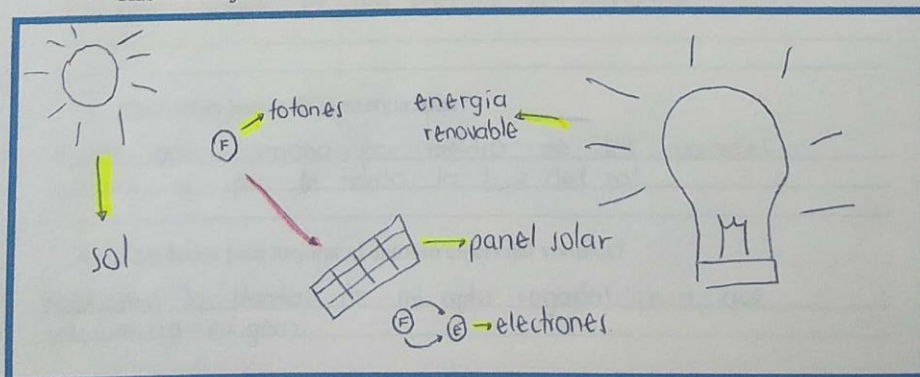 fotones
energía
renovable
F
sol
panel solar
F
E
electrones.